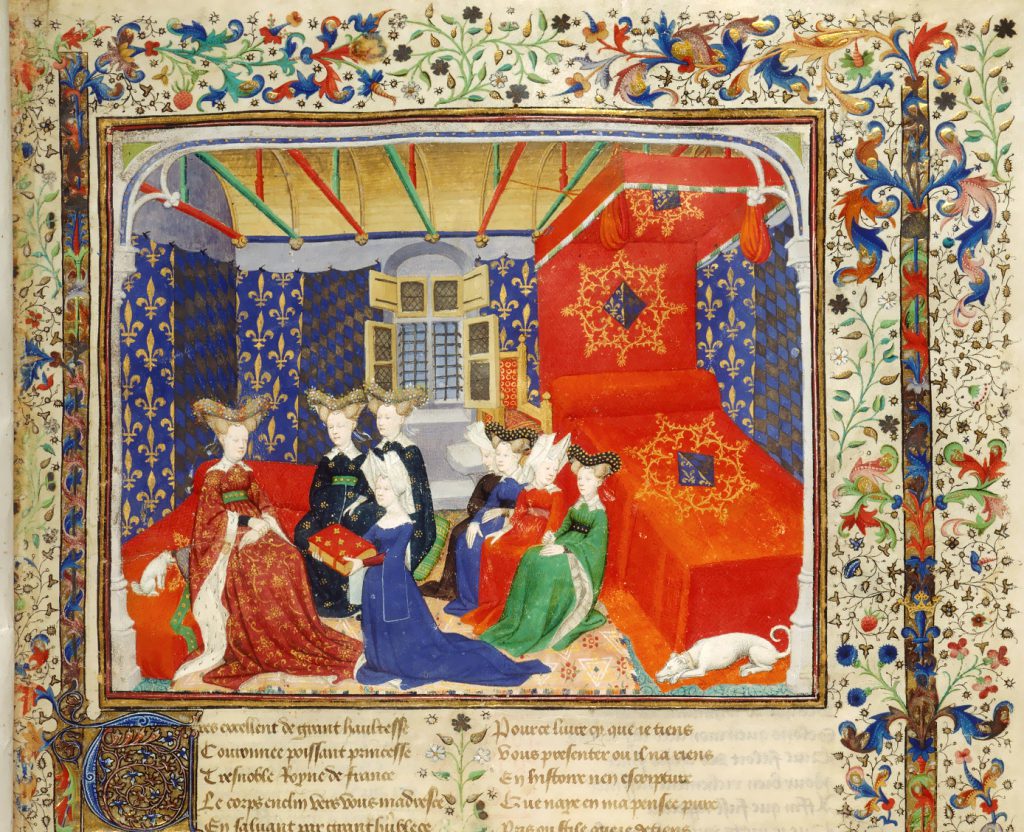 Tres excellent de grant haultesse
Couronnee poissant princesse
Tresnoble Royne de france
Le corps enclin vers vous madresce
En saluant par grant hublece
Pource liure cy que ie tiens
Vous presenter ou il na riens
En histoire nen escripture
Que naye en ma pensee pure
Pris ou stile que ie detiens